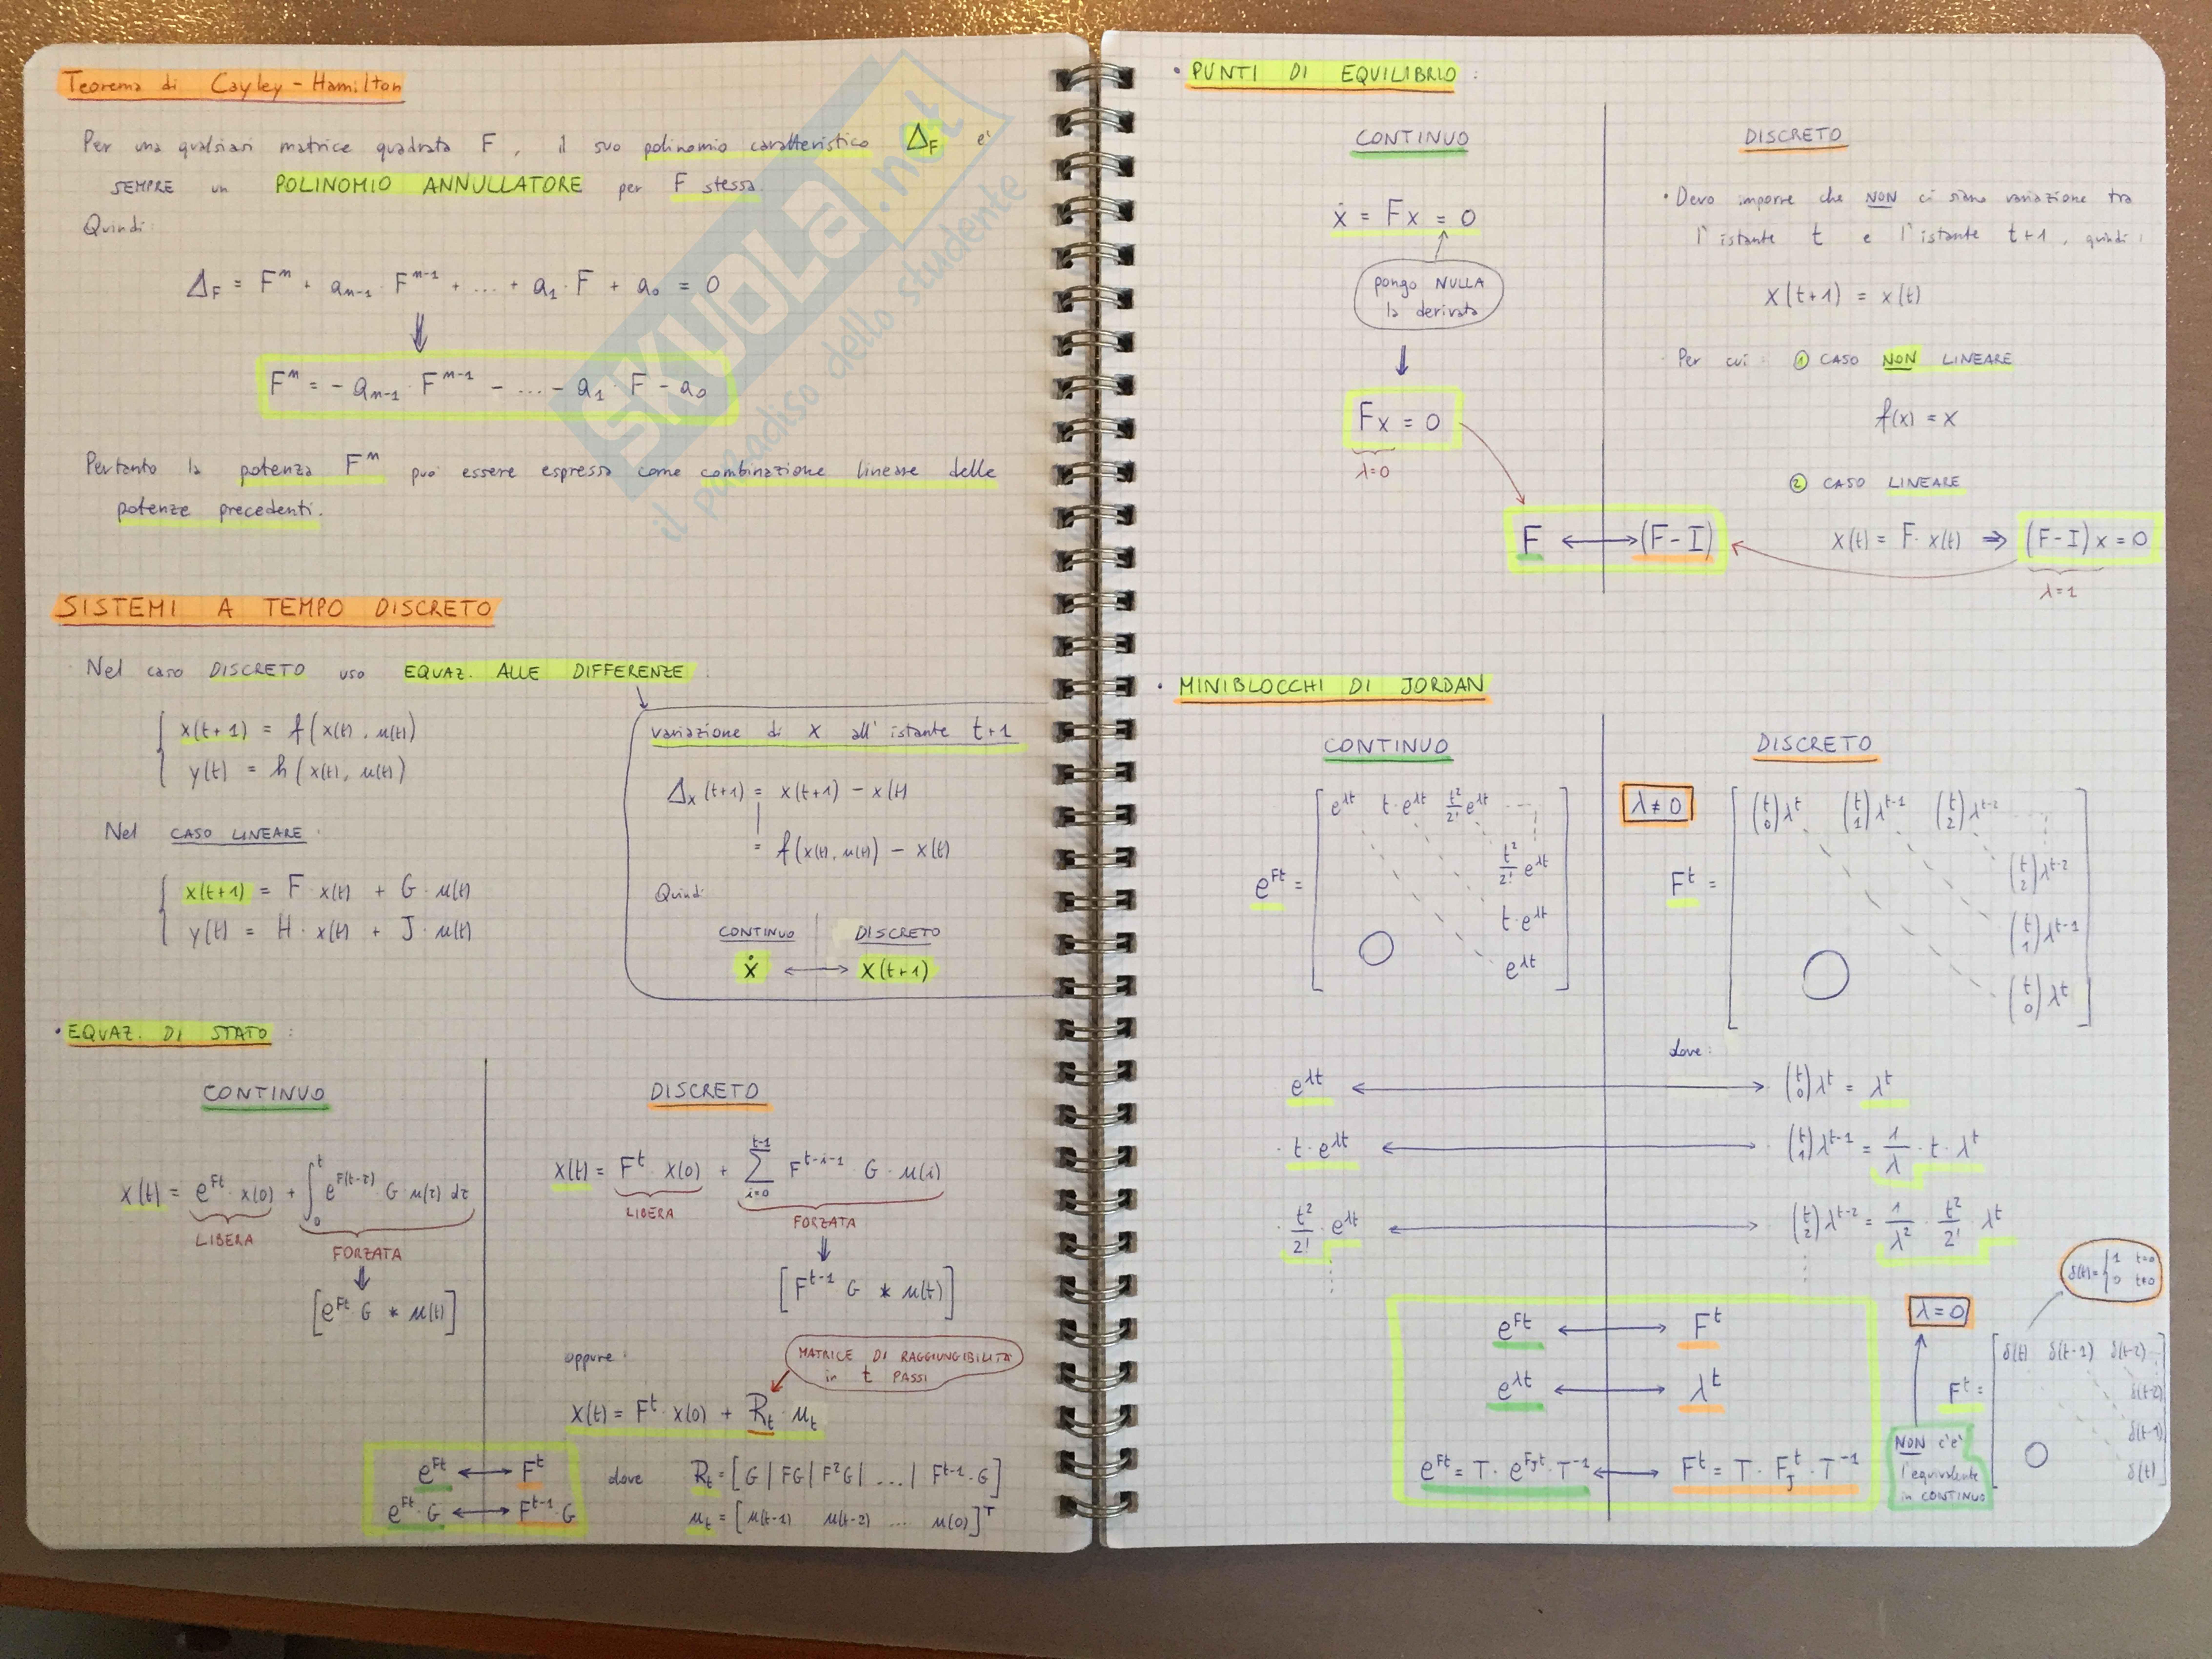 Teorema di Cayley-Hamilton
Per una qualsiasi matrice quadrata F, il suo polinomio caratteristico Δ_F e'
SEMPRE un POLINOMIO ANNULLATORE per F stessa.
Quindi:
Δ_F = F^n + a_{n-1} · F^{n-1} + ... + a_1 · F + a_0 = 0
⇓
F^n = - a_{n-1} · F^{n-1} - ... - a_1 · F - a_0
Pertanto la potenza F^n può essere espressa come combinazione lineare delle
potenze precedenti.
SISTEMI A TEMPO DISCRETO
Nel caso DISCRETO uso EQUAZ. ALLE DIFFERENZE:
x(t+1) = f(x(t), u(t))
y(t) = h(x(t), u(t))
Nel CASO LINEARE:
x(t+1) = F · x(t) + G · u(t)
y(t) = H · x(t) + J · u(t)
variazione di x all' istante t+1
Δ_x(t+1) = x(t+1) - x(t)
= f(x(t), u(t)) - x(t)
Quindi:
CONTINUO DISCRETO
ẋ ⟷ x(t+1)
• EQUAZ. DI STATO:
CONTINUO
x(t) = e^{Ft} · x(0) + ∫_0^t e^{F(t-τ)} · G · u(τ) dτ
LIBERA
FORZATA
⇓
[e^{Ft} · G * u(t)]
DISCRETO
x(t) = F^t · x(0) + Σ_{i=0}^{t-1} F^{t-i-1} · G · u(i)
LIBERA
FORZATA
⇓
[F^{t-1} G * u(t)]
oppure:
MATRICE DI RAGGIUNGIBILITÀ
in t PASSI
x(t) = F^t · x(0) + R_t · u_t
e^{Ft} ⟷ F^t
e^{Ft} · G ⟷ F^{t-1} · G
dove R_t = [G | FG | F^2G | ... | F^{t-1} · G]
u_t = [u(t-1) u(t-2) ... u(0)]^T
• PUNTI DI EQUILIBRIO:
CONTINUO
ẋ = Fx = 0
pongo NULLA
la derivata
⇓
Fx = 0
λ=0
DISCRETO
• Devo imporre che NON ci siano variazione tra
l'istante t e l'istante t+1, quindi:
x(t+1) = x(t)
Per cui: 1 CASO NON LINEARE
f(x) = x
2 CASO LINEARE
x(t) = F · x(t) ⇒ (F-I)x = 0
λ=1
F ⟷ (F-I)
• MINIBLOCCHI DI JORDAN
CONTINUO
e^{λt} t·e^{λt} t^2/2! e^{λt}
t^2/2! e^{λt}
e^{Ft} =
t·e^{λt}
O e^{λt}
DISCRETO
λ≠0
(t 0)λ^t (t 1)λ^{t-1} (t 2)λ^{t-2}
(t 2)λ^{t-2}
F^t =
(t 1)λ^{t-1}
O (t 0)λ^t
dove:
e^{λt} ⟷ (t 0)λ^t = λ^t
t·e^{λt} ⟷ (t 1)λ^{t-1} = 1/λ · t · λ^t
t^2/2! · e^{λt} ⟷ (t 2)λ^{t-2} = 1/λ^2 · t^2/2! · λ^t
e^{Ft} ⟷ F^t
e^{λt} ⟷ λ^t
e^{Ft} = T · e^{F_J t} · T^{-1} ⟷ F^t = T · F_J^t · T^{-1}
λ=0
δ(t) = { 1 t=0
0 t≠0
δ(t) δ(t-1) δ(t-2)
F^t = δ(t-2)
δ(t-1)
O δ(t)
NON c'e'
l'equivalente
in CONTINUO
SKUOLA.net
il paradiso dello studente